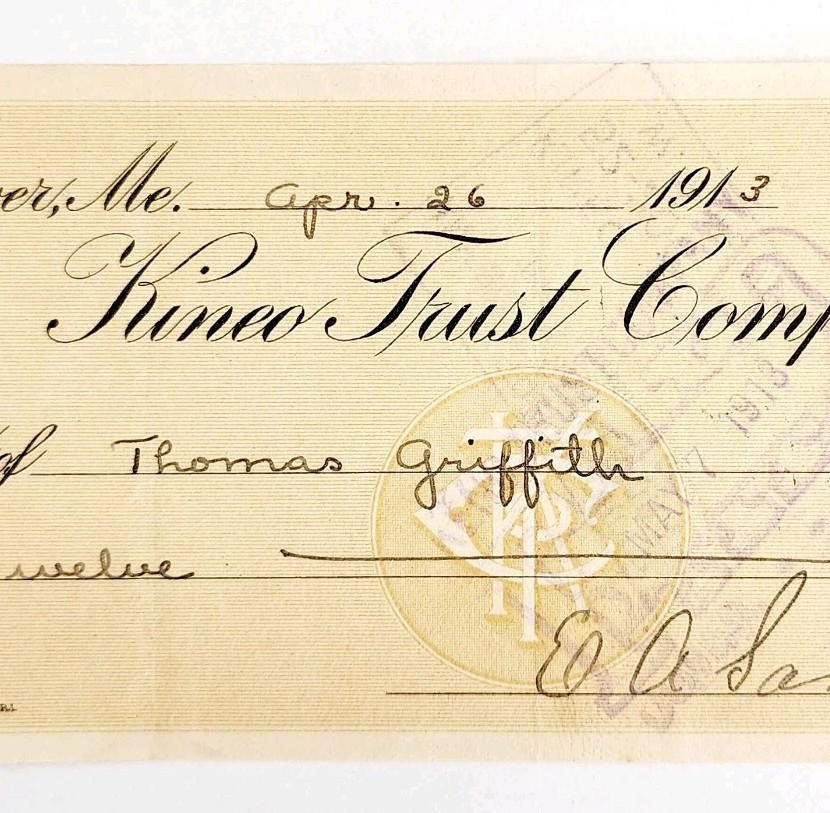 er, Me. Apr. 26 1913
Kineo Trust Comp
of Thomas Griffith
welve
E A Sa
MAY 7 1913